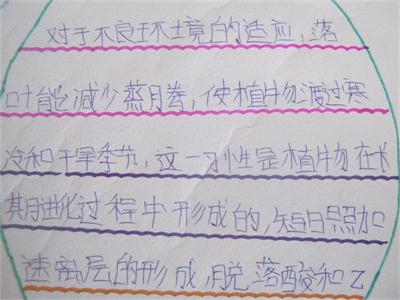 对于不良环境的适应,落
叶能减少蒸腾,使植物渡过寒
冷和干旱季节,这一习性是植物在长
期进化过程中形成的,短日照加
速离层的形成,脱落酸和乙